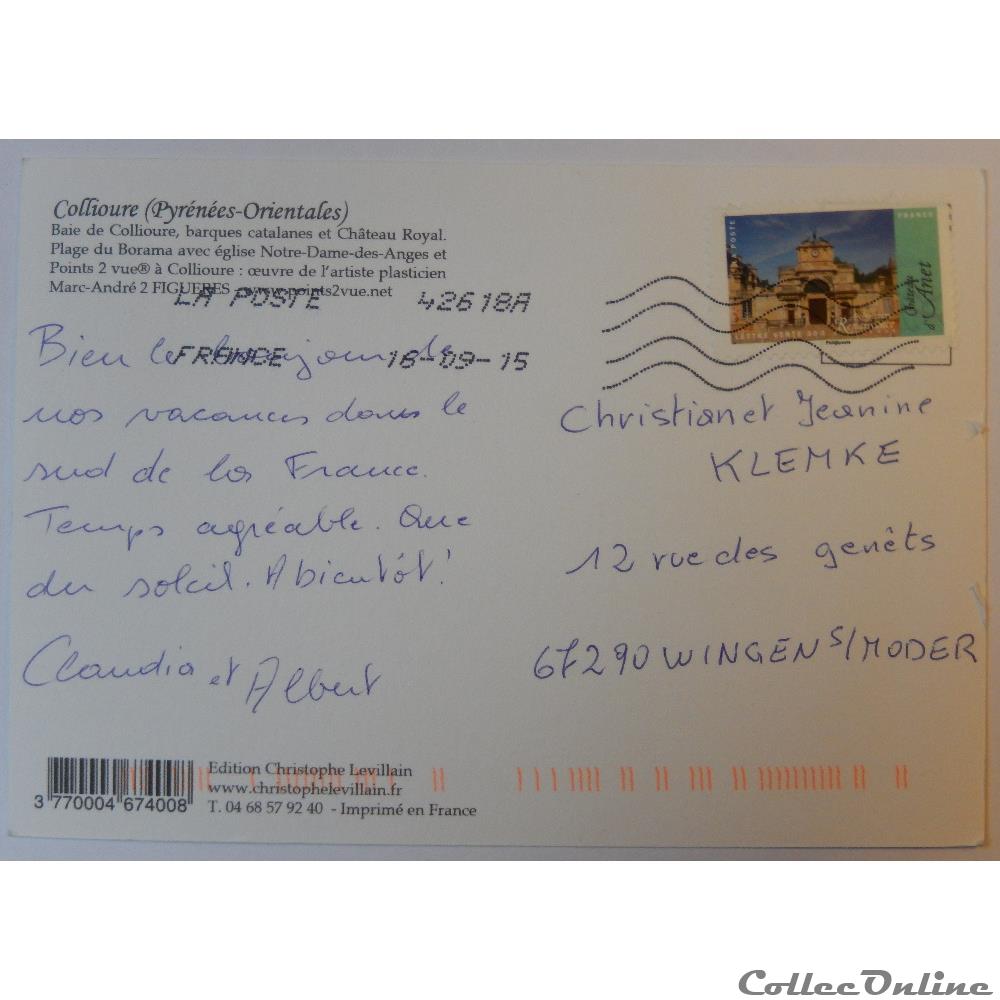 Collioure (Pyrénées-Orientales)
Baie de Collioure, barques catalanes et Château Royal.
Plage du Borama avec église Notre-Dame-des-Anges et
Points 2 vue® à Collioure : œuvre de l'artiste plasticien
Marc-André 2 FIGUERES - www.points2vue.net
LA POSTE 42618A
FRANCE 16-09-15
Bien le bonjour de
nos vacances dans le
sud de la France.
Temps agréable. Que
du soleil. A bientôt!
Claudia et Albert
FRANCE
LA POSTE
Château
d'Anet
LETTRE VERTE 20g
Phil@poste
Christian et Jeanine
KLEMKE
12 rue des genêts
67290 WINGEN S/MODER
3 770004 674008
Edition Christophe Levillain
www.christophelevillain.fr
T. 04 68 57 92 40 - Imprimé en France
CollecOnline